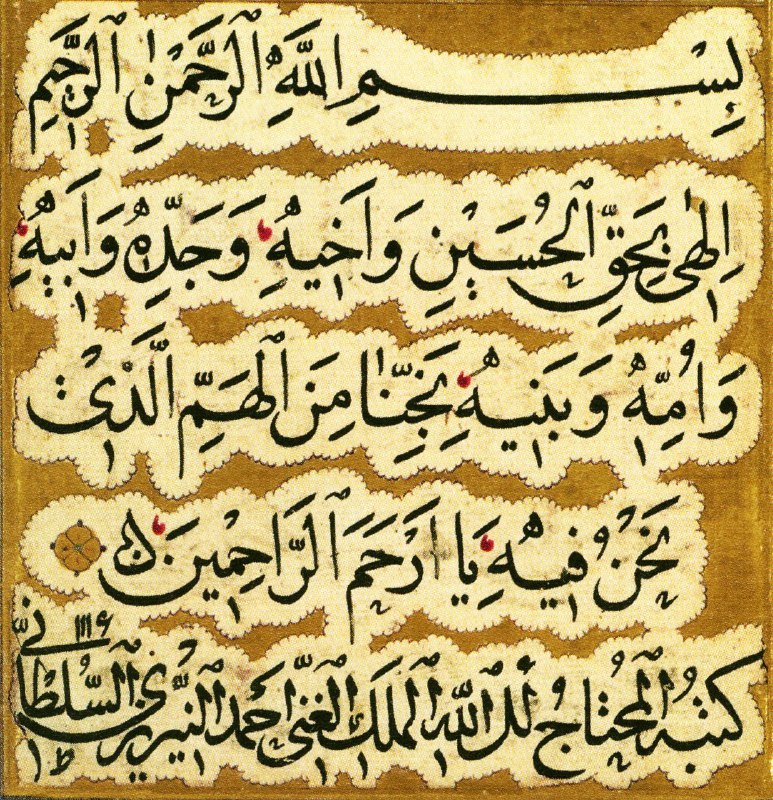 بِسْمِ اللَّهِ الرَّحْمٰنِ الرَّحِيمِ
اِلٰهِى بِحَقِّ الْحُسَيْنِ وَاَخِيهِ وَجَدِّهِ وَاَبِيهِ
وَاُمِّهِ وَبَنِيهِ نَجِّنَا مِنَ الْهَمِّ الَّذِى
نَحْنُ فِيهِ يَا اَرْحَمَ الرَّاحِمِينَ
كتبه المحتاج الى الله الملك الغنى احمد النيريزى السلطانى